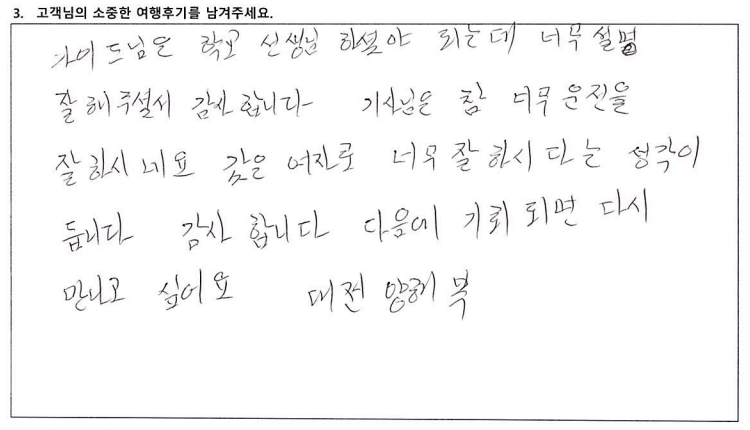 3. 고객님의 소중한 여행후기를 남겨주세요.
가이드님은 학교 선생님 하셜야 되는데 너무 설명
잘해주셜서 감사합니다 기사님은 참 너무 운전을
잘하시네요 갗은 여자로 너무 잘하시다는 생각이
듭니다 감사합니다 다음에 기회되면 다시
만나고 싶어요 대전 양해복